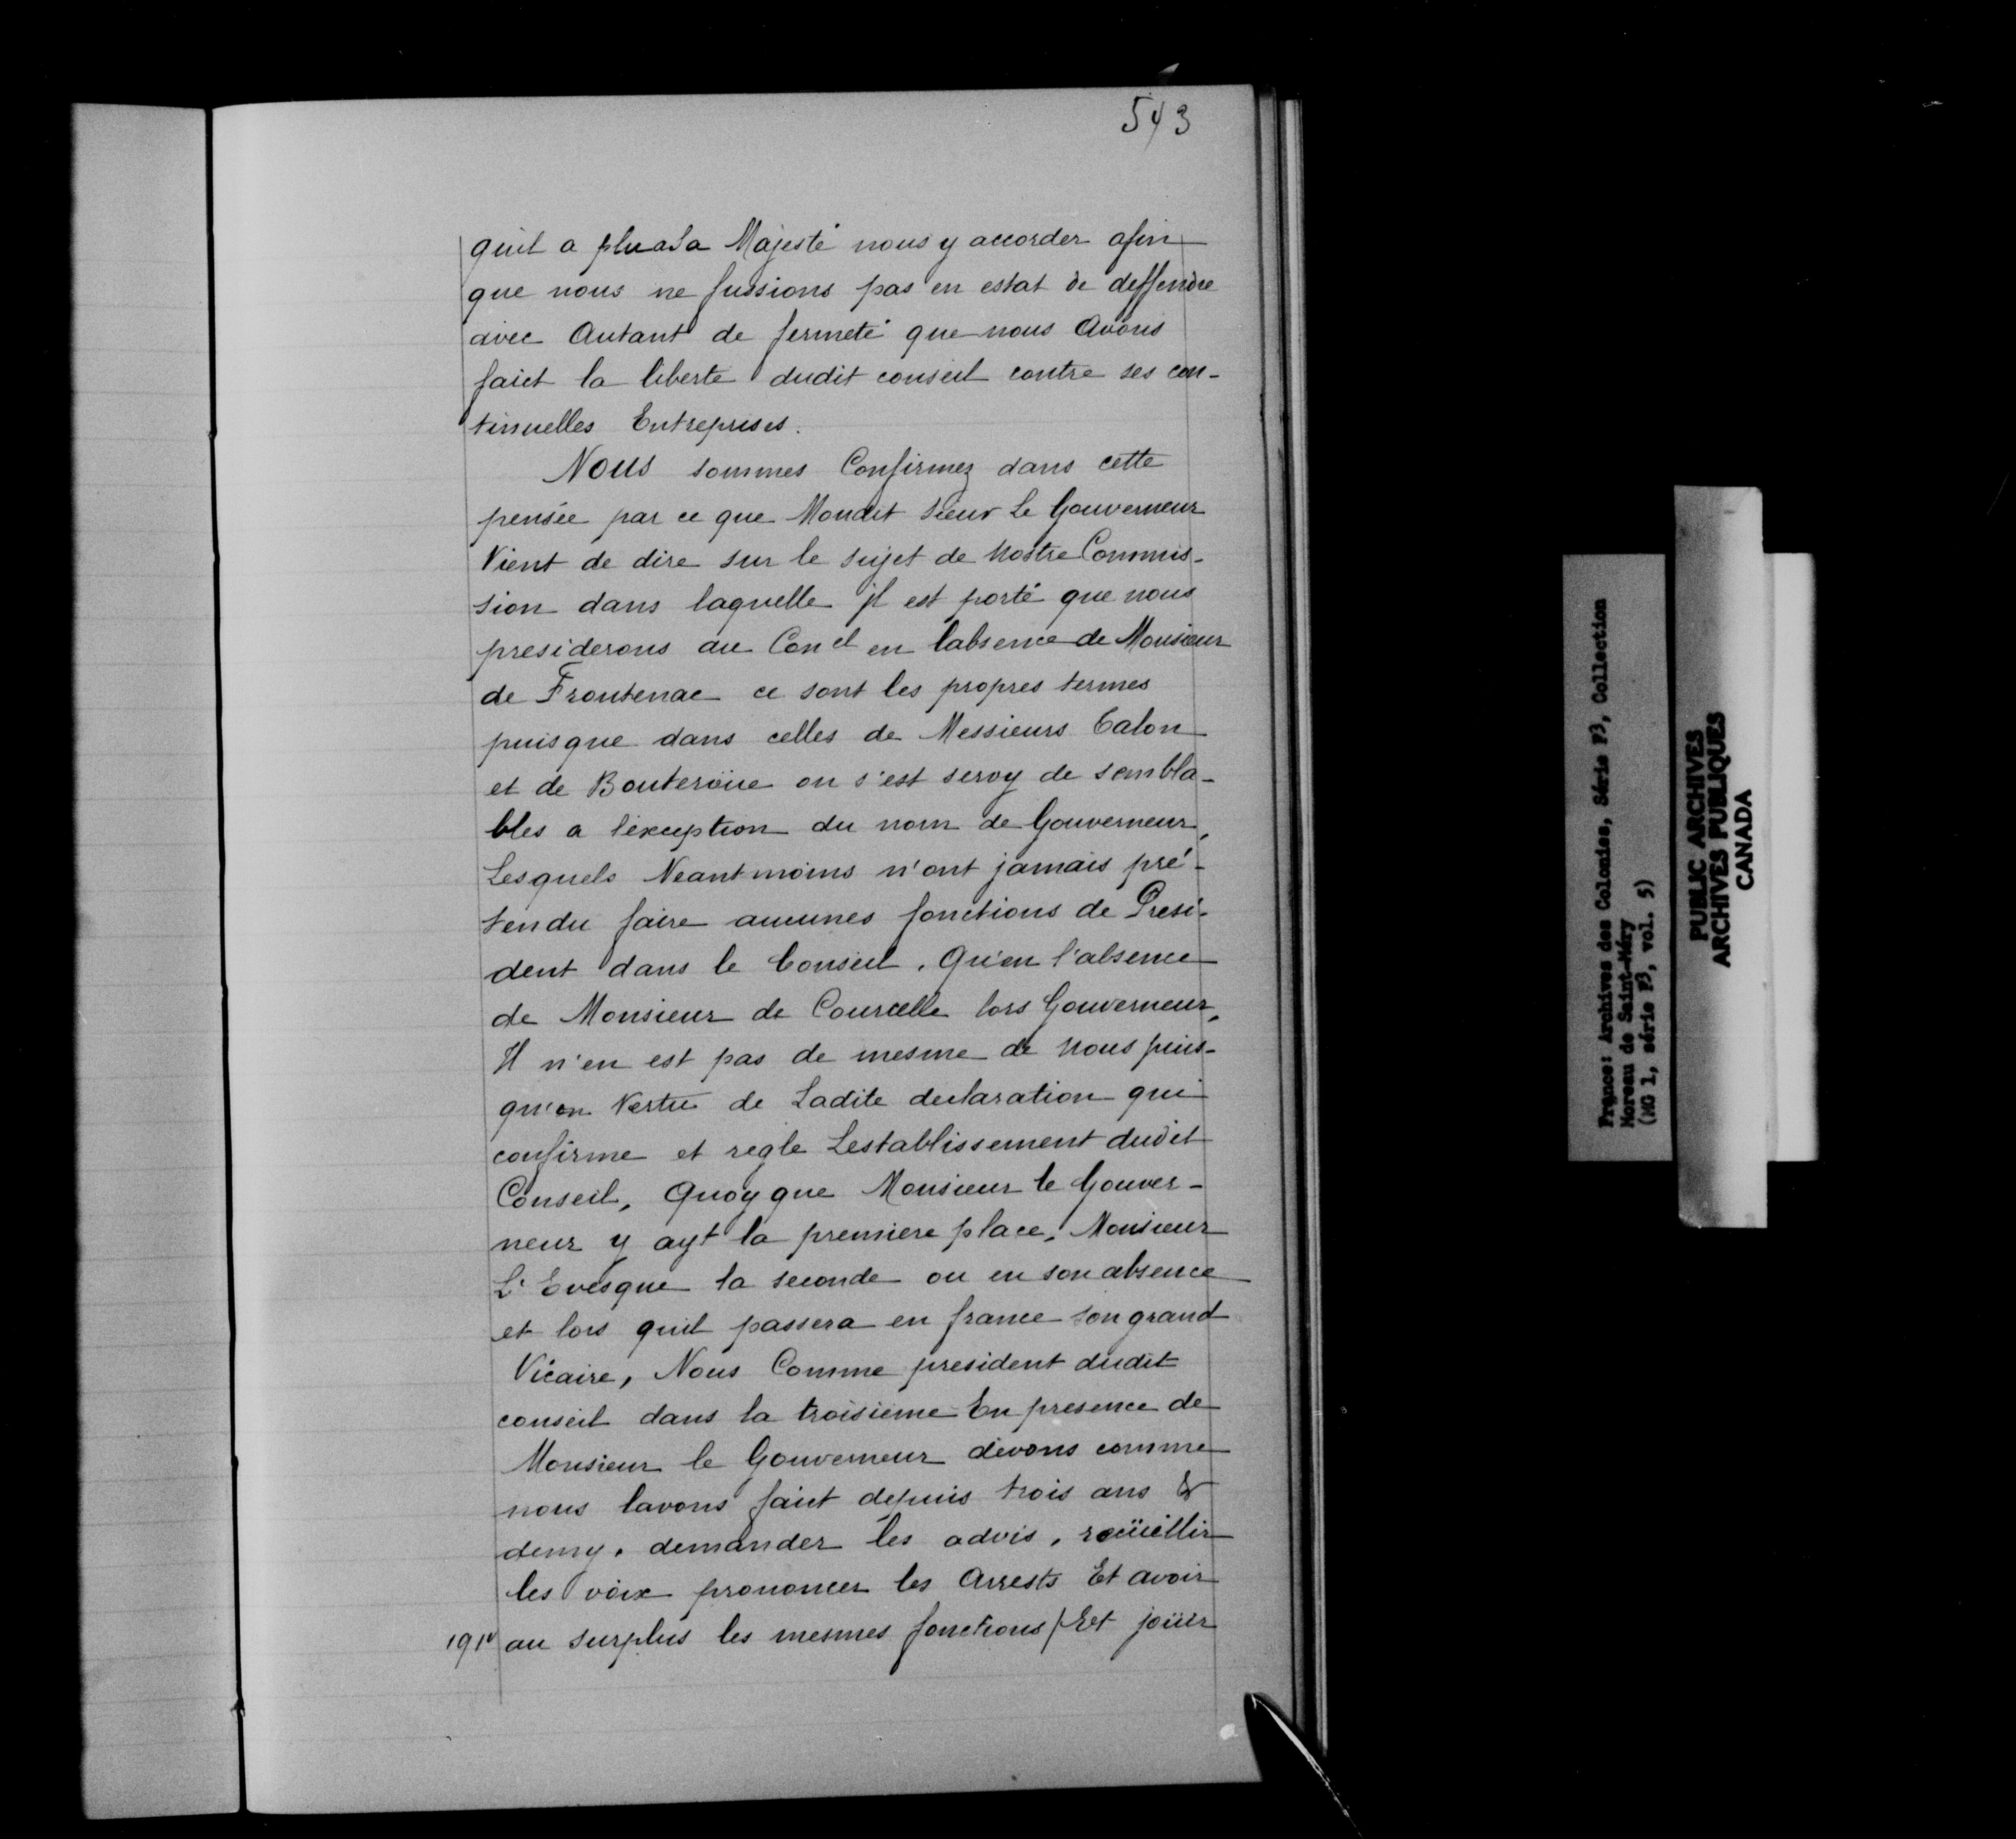 543
quil a plu a Sa Majesté nous y accorder afin
que nous ne fussions pas en estat de deffendre
avec Autant de fermeté que nous Avons
faict la liberte dudit conseil contre ses con-
tinuelles Entreprises.
Nous sommes Confirmez dans cette
pensée par ce que Mondit Sieur Le Gouverneur
Vient de dire sur le sujet de Nostre Commis-
sion dans laquelle jl est porté que nous
presiderons au Con el en labsence de Monsieur
de Frontenac ce sont les propres termes
puisque dans celles de Messieurs Talon
et de Bouteroüe on s'est servy de sembla-
bles a lexception du nom de Gouverneur,
Lesquels Neantmoins n'ont jamais pré-
tendu faire aucunes fonctions de Presi-
dent dans le Conseil. Qu'en l'absence
de Monsieur de Courcelle lors Gouverneur,
Il n'en est pas de mesme de Nous puis-
qu'en Vertu de Ladite declaration qui
confirme et regle Lestablissement dudit
Conseil, Quoy que Monsieur le Gouver-
neur y ayt la premiere place, Monsieur
L'Evesque la seconde ou en son absence
et lors quil passera en france son grand
Vicaire, Nous Comme president dudit
conseil dans la troisieme En presence de
Monsieur le Gouverneur devons comme
nous lavons faict depuis trois ans &
demy. demander les advis, recüeillir
les voix prononcer les Arrests Et avoir
191v au surplus les mesmes fonctions / Et joüir
France: Archives des Colonies, Série F3, Collection
Moreau de Saint-Méry
(MG 1, série F3, vol. 5)
PUBLIC ARCHIVES
ARCHIVES PUBLIQUES
CANADA